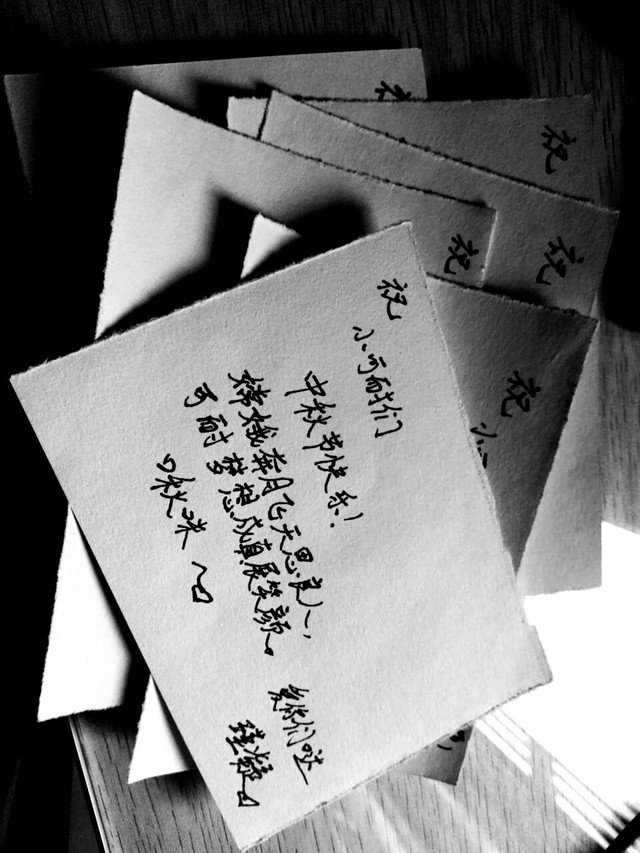 祝
小可耐们
中秋节快乐！
嫦娥奔月飞天思
可耐梦想成真展笑颜。
秋咪～
爱你们哒
祝
祝
祝
祝
小